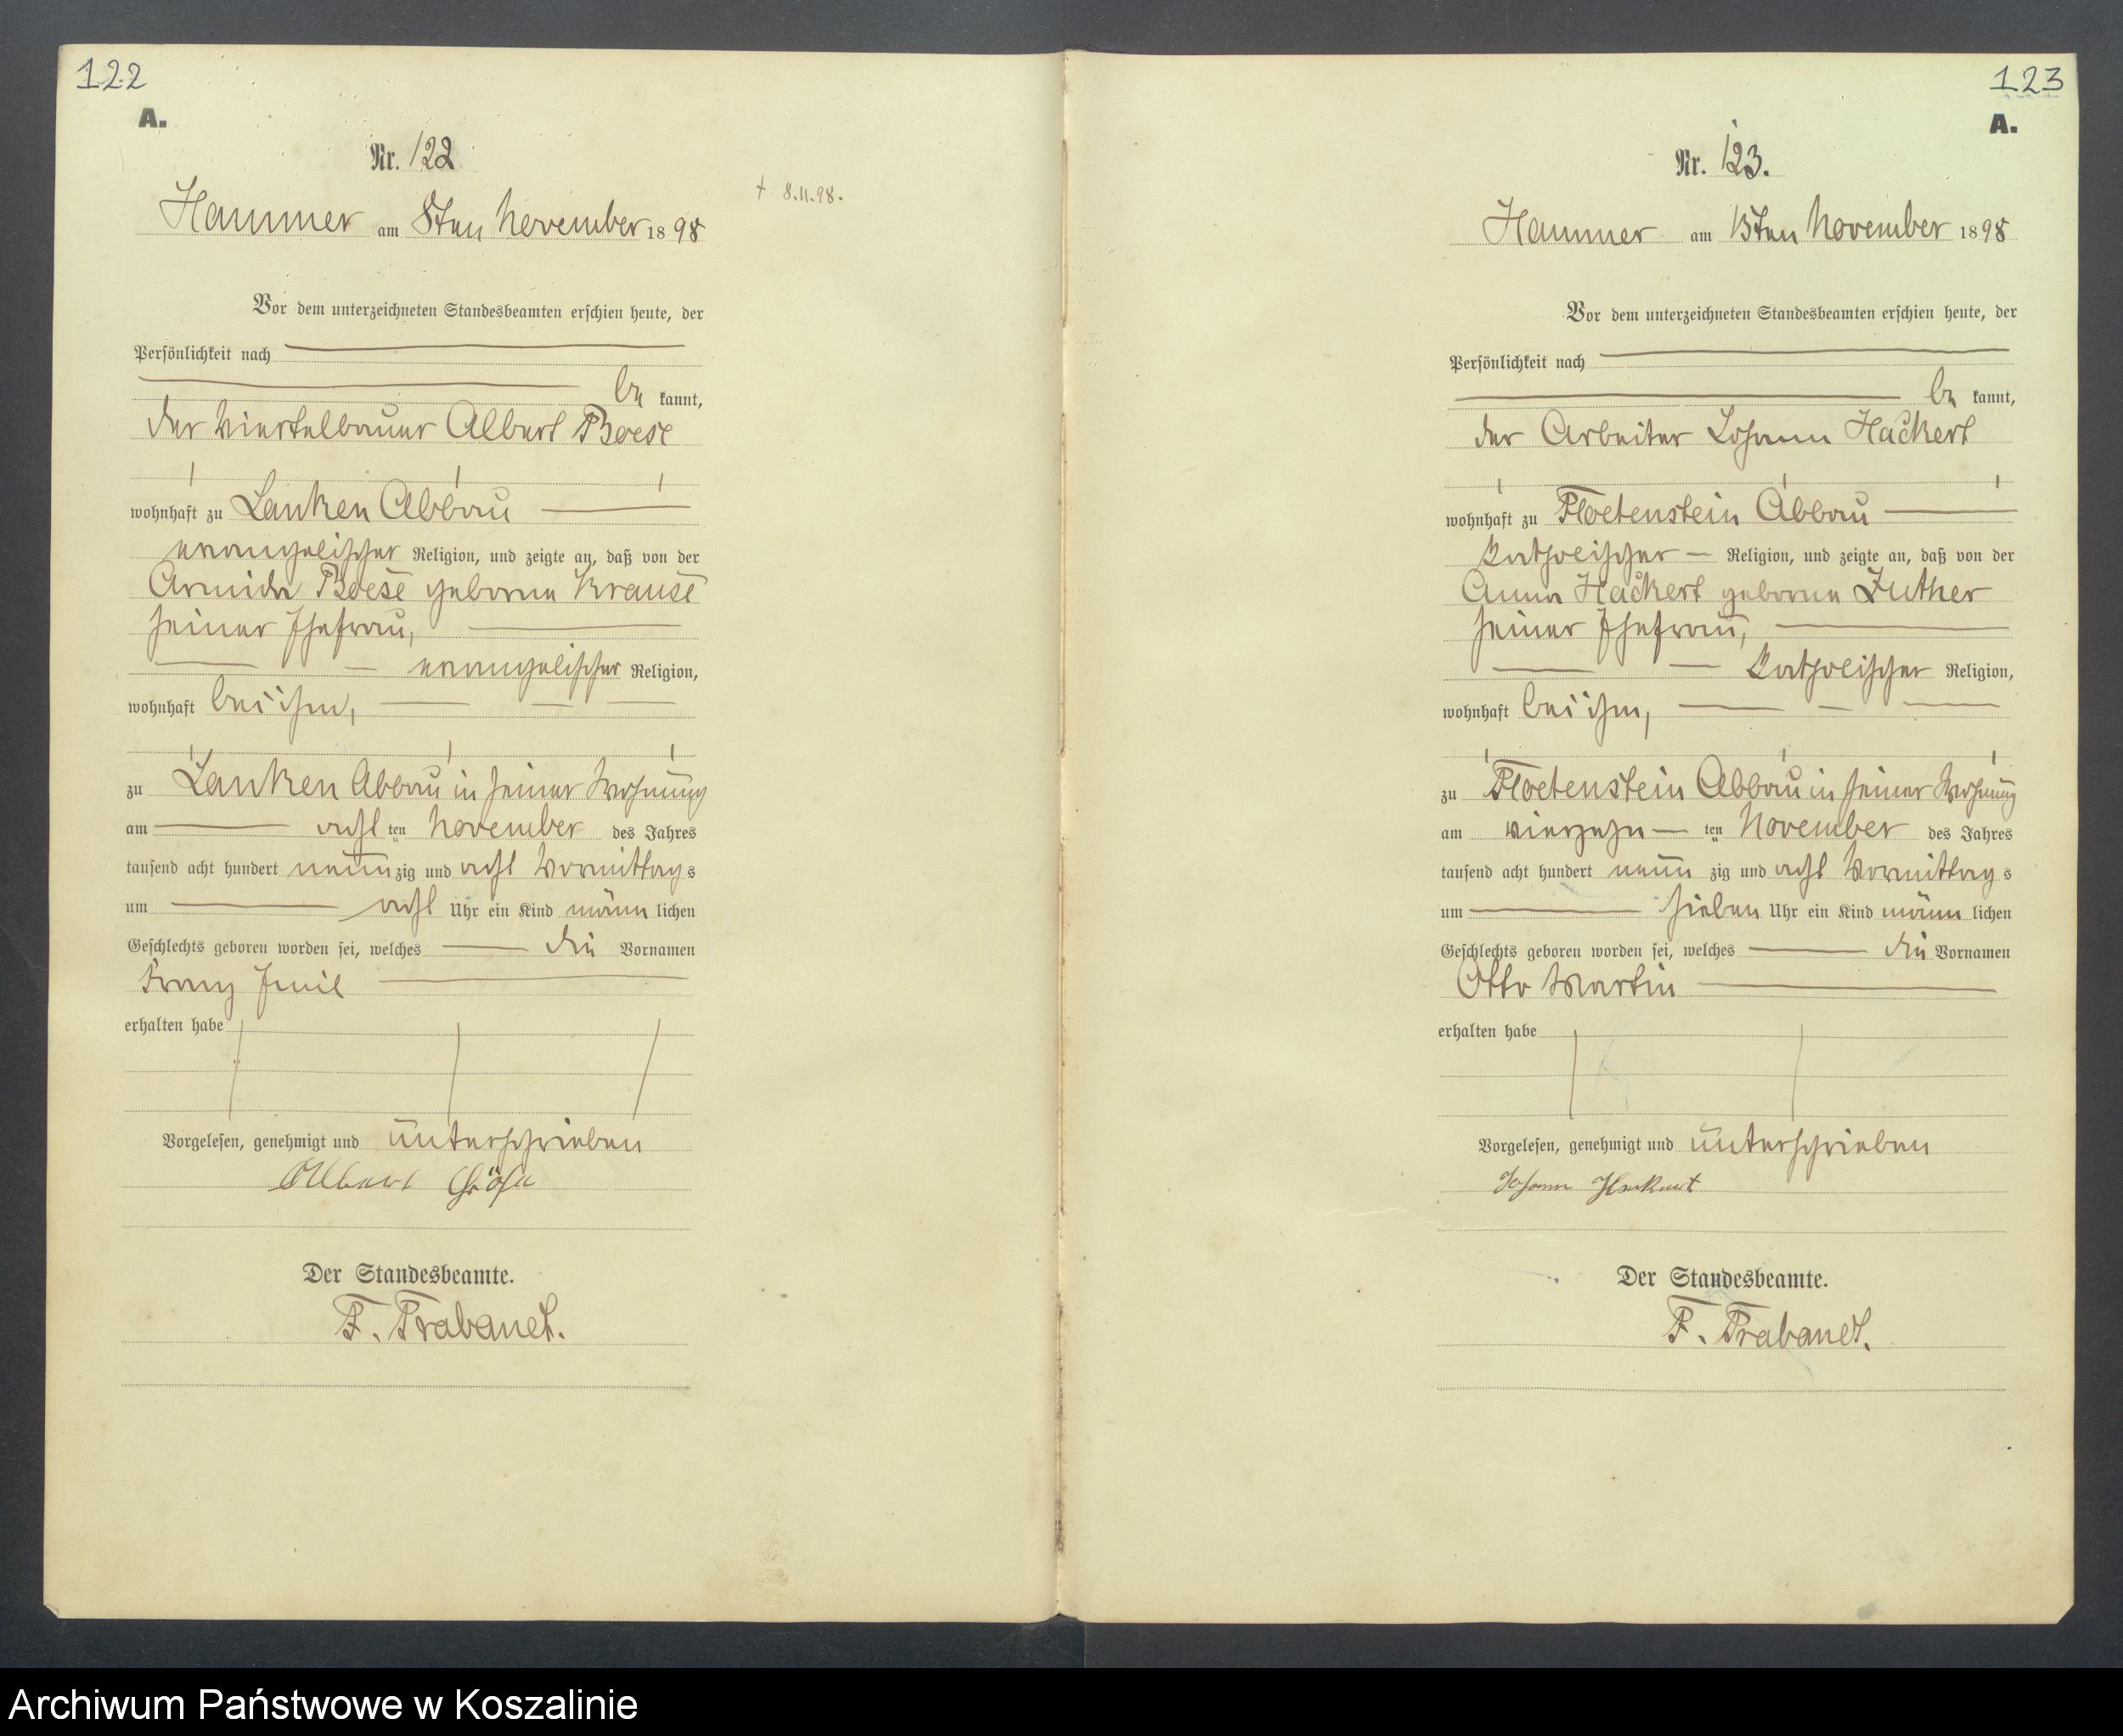 122
A.
Nr. 122
† 8.11.98.
Hammer am 8ten November 1898
Vor dem unterzeichneten Standesbeamten erschien heute, der
Persönlichkeit nach
be kannt,
der Viertelbauer Albert Boese
wohnhaft zu Lanken Abbau
evangelischer Religion, und zeigte an, daß von der
Boese geborne Krause
seiner Ehefrau,
evangelischer Religion,
wohnhaft bei ihm,
zu Lanken Abbau in seiner Wohnung
am acht ten November des Jahres
tausend acht hundert neun zig und acht Vormittag s
um acht Uhr ein Kind männ lichen
Geschlechts geboren worden sei, welches die Vornamen
Franz Emil
erhalten habe
Vorgelesen, genehmigt und unterschrieben
Albert Böse
Der Standesbeamte.
F. Trabandt.
123
A.
Nr. 123.
Hammer am 15ten November 1898
Vor dem unterzeichneten Standesbeamten erschien heute, der
Persönlichkeit nach
be kannt,
der Arbeiter Johann Hackert
wohnhaft zu Floetenstein Abbau
katholischer Religion, und zeigte an, daß von der
Anna Hackert geborne Luther
seiner Ehefrau,
katholischer Religion,
wohnhaft bei ihm,
zu Floetenstein Abbau in seiner Wohnung
am vierzehn ten November des Jahres
tausend acht hundert neun zig und acht Vormittag s
um sieben Uhr ein Kind männ lichen
Geschlechts geboren worden sei, welches die Vornamen
Otto Martin
erhalten habe
Vorgelesen, genehmigt und unterschrieben
Johann Hackert
Der Standesbeamte.
F. Trabandt.
Archiwum Państwowe w Koszalinie